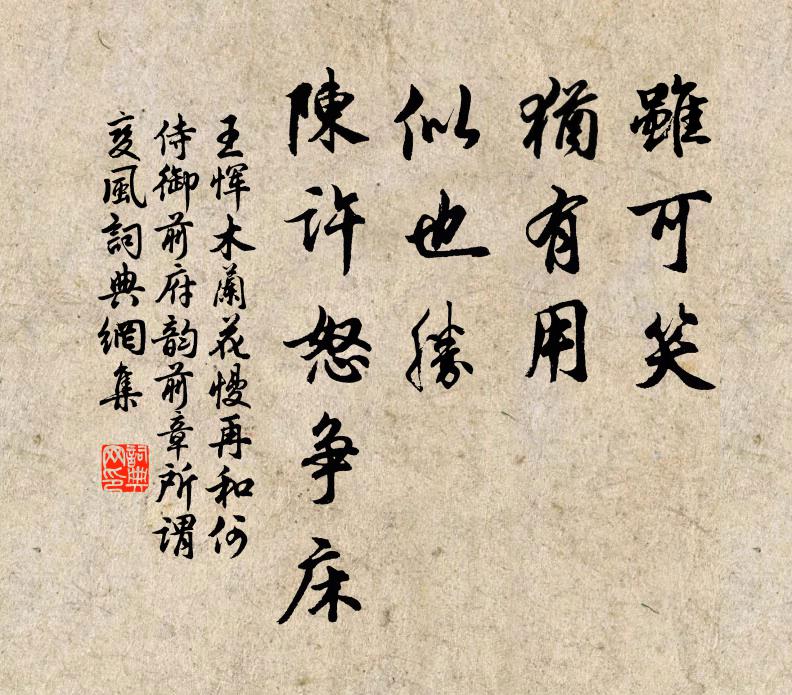 雖可笑
猶有用
似也勝
陳許怒争床
王惲木蘭花慢再和何
侍御前府韵前章所謂
变風詞典網集
詞典
网印